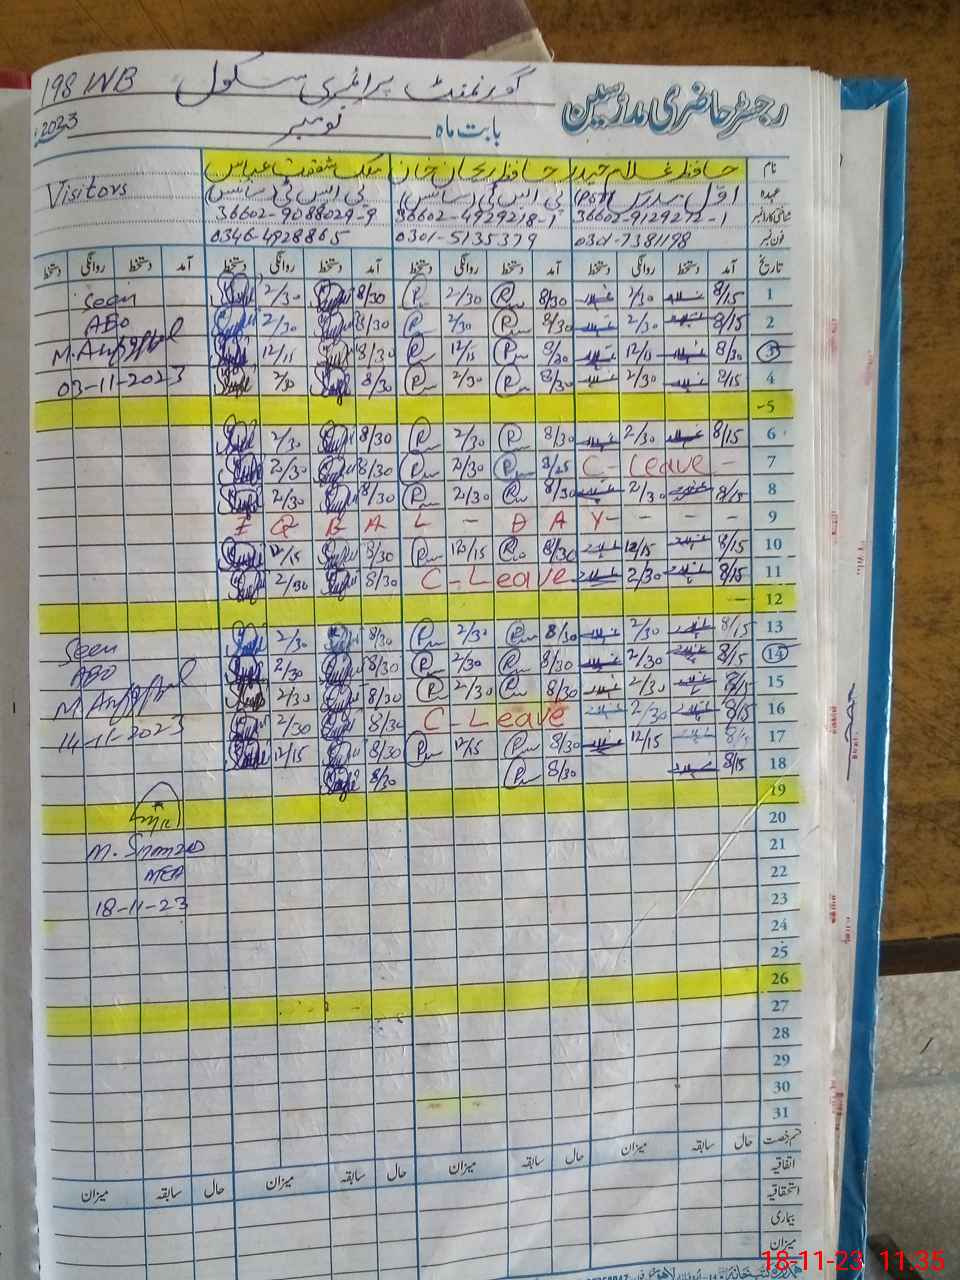 198 WB گورنمنٹ پرائمری سکول رجسٹر حاضری مدرسین
2023 نومبر بابت ماہ
نام حافظ غلام حیدر حافظ ریحان خان ملک شفقت عباس
عہدہ اول مدرس (PST) پی ایس ٹی (سائنس) پی ایس ٹی (سائنس) Visitors
شناختی کارڈ نمبر 36602-9129272-1 36602-4929218-1 36602-9088029-9
فون نمبر 0301-7381198 0301-5135379 0346-4928865
تاریخ آمد دستخط روانگی دستخط آمد دستخط روانگی دستخط آمد دستخط روانگی دستخط آمد دستخط روانگی دستخط
1 8/15 2/30 8/30 2/30 8/30 2/30 Seen
2 8/15 2/30 8/30 2/30 8/30 2/30 AEO
3 8/30 12/15 8/30 12/15 8/30 12/15
4 8/15 2/30 8/30 2/30 8/30 2/30 03-11-2023
5
6 8/15 2/30 8/30 2/30 8/30 2/30
7 C - Leave - 8/25 2/30 8/30 2/30
8 8/15 2/30 8/30 2/30 8/30 2/30
9 I Q B A L - D A Y - - - -
10 8/15 12/15 8/30 12/15 8/30 12/15
11 8/15 2/30 C - Leave 8/30 2/30
12
13 8/15 2/30 8/30 2/30 8/30 2/30 Seen
14 8/15 2/30 8/30 2/30 8/30 2/30 AEO
15 8/15 2/30 8/30 2/30 8/30 2/30
16 8/15 2/30 C - Leave 8/30 2/30 14-11-2023
17 8/15 12/15 8/30 12/15 8/30 12/15
18 8/15 8/30 8/30
19
20
21
22 MEA
23 18-11-23
24
25
26
27
28
29
30
31
قسم رخصت حال سابقہ میزان حال سابقہ میزان حال سابقہ میزان حال سابقہ میزان
اتفاقیہ
استحقاقیہ
بیماری
میزان
18-11-23 11:35